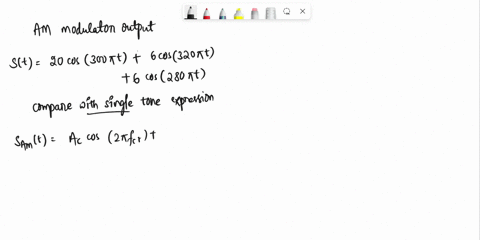 AM modulaton output
S(t) = 20 cos (300πt) + 6 cos(320πt)
+ 6 cos(280πt)
compare with single tone expression
S_AM(t) = Ac cos (2πfct) +